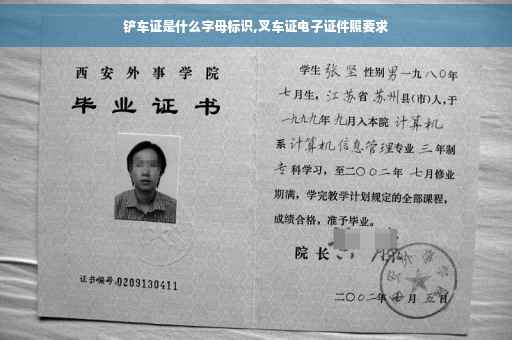 铲车证是什么字母标识,叉车证电子证件照要求
西安外事学院
毕业证书
证书编号:0209130411
学生 张坚 性别男一九八〇年
七月生，江苏省苏州县(市)人,于
一九九九年九月入本院计算机
系计算机信息管理专业三年制
专科学习，至二〇〇二年七月修业
期满，学完教学计划规定的全部课程，
成绩合格，准予毕业。
院长
二〇〇二年 月五日